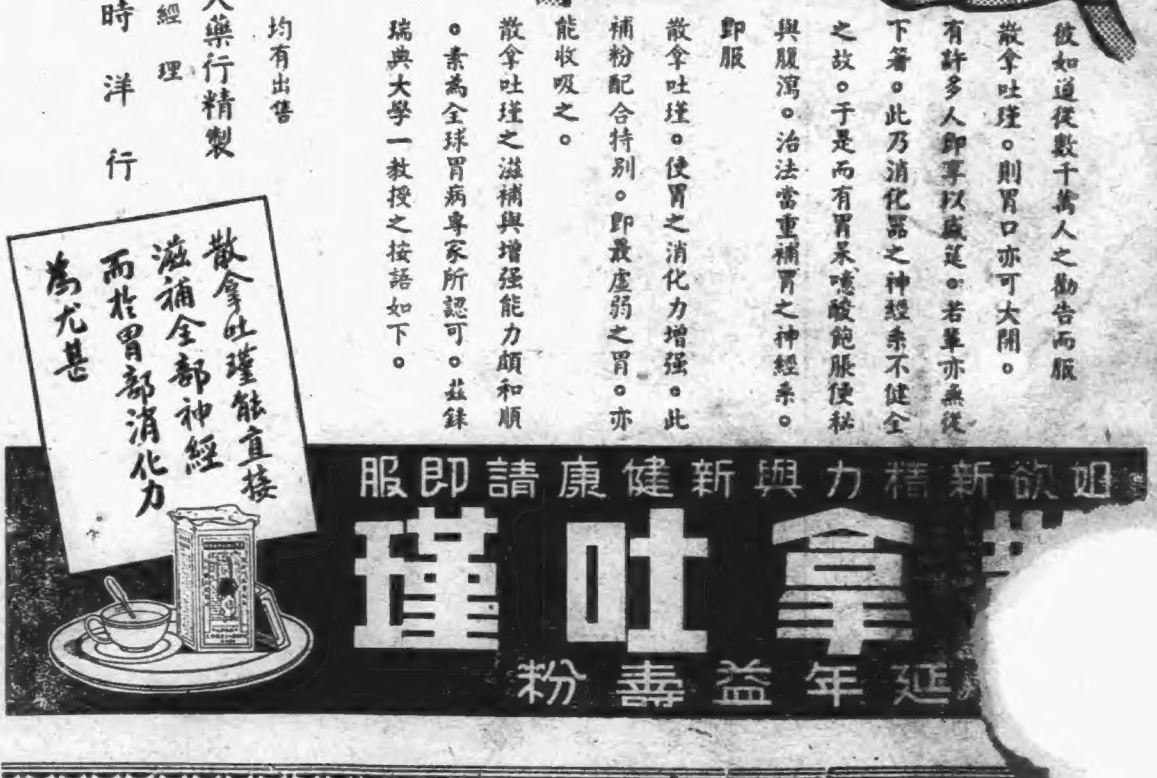 彼如道從數千萬人之勸告而服
散拿吐瑾。則胃口亦可大開。
有許多人即享以盛筵。若輩亦無從
下著。此乃消化器之神經系不健全
之故。于是而有胃呆噫酸飽脹便秘
與腹瀉。治法當重補胃之神經系。
即服
散拿吐瑾。使胃之消化力增强。此
補粉配合特别。即最虛弱之胃。亦
能收吸之。
散拿吐瑾之滋補與增强能力頗和順
。素為全球胃病專家所認可。茲錄
瑞典大學一教授之按語如下。
均有出售
大藥行精製
經理
時洋行
散拿吐瑾能直接
滋補全部神經
而於胃部消化力
為尤甚
欲新精力與新健康請即服
拿吐瑾
延年益壽粉